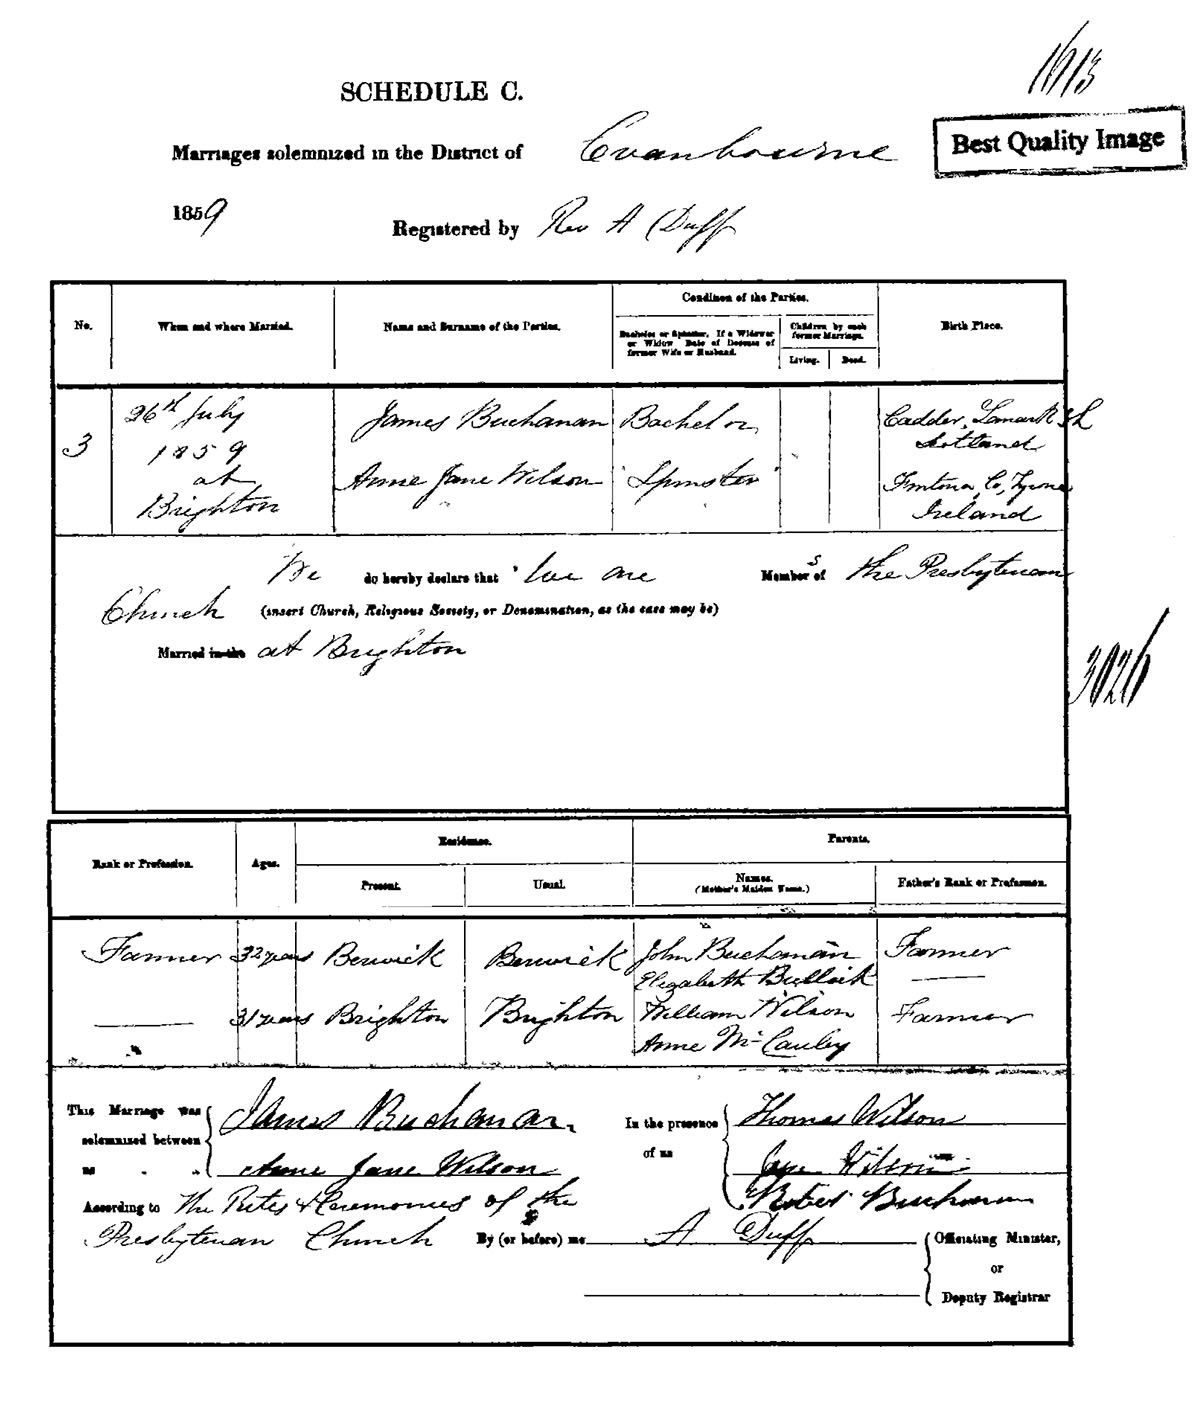 1613
SCHEDULE C.
Best Quality Image
Marriages solemnized in the District of Cranbourne
1859
Registered by Rev A Duff
No.
When and where Married.
Name and Surname of the Parties.
Condition of the Parties.
Bachelor or Spinster. If a Widower
or Widow Date of Decease of
former Wife or Husband.
Children by each
former Marriage.
Living.
Dead.
Birth Place.
3
26th July
1859
at
Brighton
James Buchanan
Bachelor
Cadder, Lanark
Scotland
Anne Jane Wilson
Spinster
Fintona, Co, Tyrone
Ireland
We do hereby declare that We are Members of the Presbyterian
Church (insert Church, Religious Society, or Denomination, as the case may be)
Married in the at Brighton
3026
Rank or Profession.
Ages.
Residence.
Present.
Usual.
Parents.
Names.
(Mother's Maiden Name.)
Father's Rank or Profession.
Farmer
32 years
Berwick
Berwick
John Buchanan
Elizabeth Bulloch
Farmer
31 years
Brighton
Brighton
William Wilson
Anne McCauley
Farmer
This Marriage was James Buchanan
solemnized between
us Anne Jane Wilson
In the presence Thomas Wilson
of us
Jane Wilson
Robert Buchanan
According to The Rites & Ceremonies of the
Presbyterian Church By (or before) me A Duff
Officiating Minister,
or
Deputy Registrar